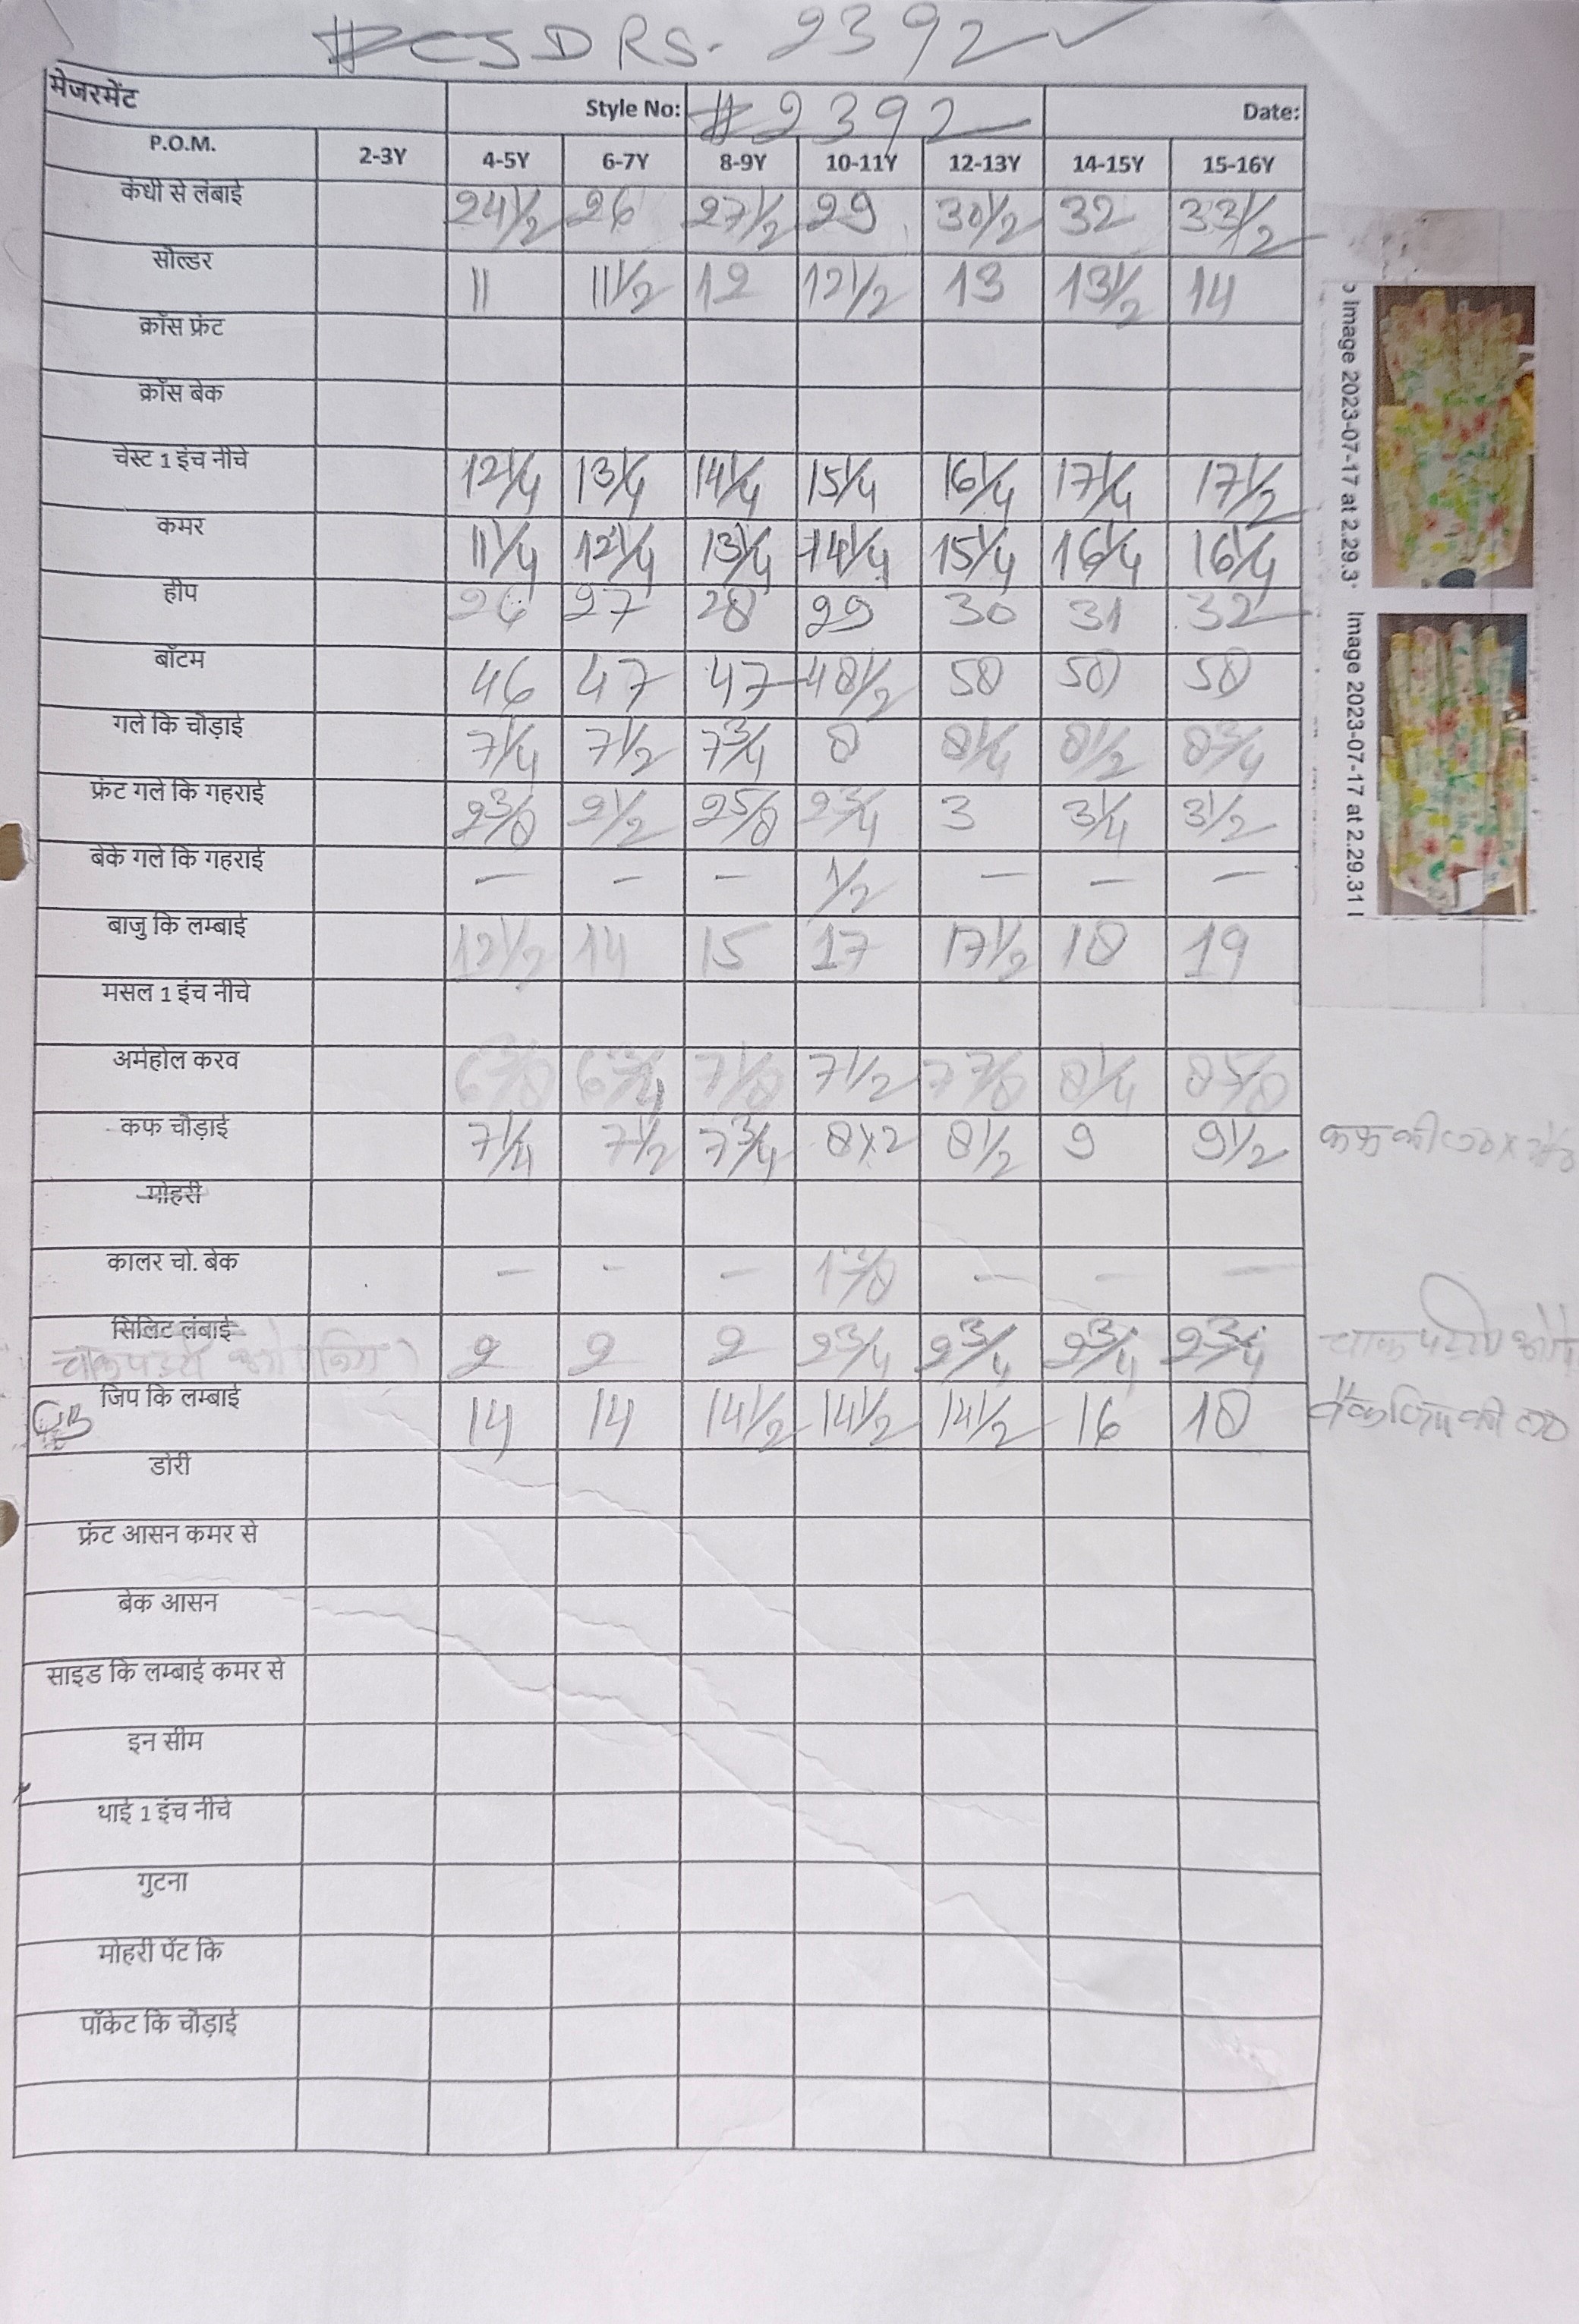 #CSDRS-2392
मेजरमेंट Style No: #2392 Date:
P.O.M. 2-3Y 4-5Y 6-7Y 8-9Y 10-11Y 12-13Y 14-15Y 15-16Y
कंधी से लंबाई 24 1/2 26 27 1/2 29 30 1/2 32 33 1/2
सोल्डर 11 11 1/2 12 12 1/2 13 13 1/2 14
क्रॉस फ्रंट
क्रॉस बेक
चेस्ट 1 इंच नीचे 12 1/4 13 1/4 14 1/4 15 1/4 16 1/4 17 1/4 17 1/2
कमर 11 1/4 12 1/4 13 1/4 14 1/4 15 1/4 16 1/4 16 1/4
हीप 26 27 28 29 30 31 32
बॉटम 46 47 47 48 1/2 50 50 50
गले कि चौड़ाई 7 1/4 7 1/2 7 3/4 8 8 1/4 8 1/2 8 3/4
फ्रंट गले कि गहराई 2 3/8 2 1/2 2 5/8 2 3/4 3 3 1/4 3 1/2
बेके गले कि गहराई - - - 1/2 - - -
बाजु कि लम्बाई 12 1/2 14 15 17 17 1/2 18 19
मसल 1 इंच नीचे
अर्महोल करव 6 3/8 6 3/4 7 1/8 7 1/2 7 7/8 8 1/4 8 5/8
कफ चौड़ाई 7 1/4 7 1/2 7 3/4 8x2 8 1/2 9 9 1/2
मोहरी
कालर चो. बेक - - - 1 3/8 - - -
सिलिट लंबाई 2 2 2 2 3/4 2 3/4 2 3/4 2 3/4
CB जिप कि लम्बाई 14 14 14 1/2 14 1/2 14 1/2 16 18
डोरी
फ्रंट आसन कमर से
बेक आसन
साइड कि लम्बाई कमर से
इन सीम
थाई 1 इंच नीचे
गुटना
मोहरी पेंट कि
पॉकेट कि चौड़ाई
Image 2023-07-17 at 2.29.3
Image 2023-07-17 at 2.29.31